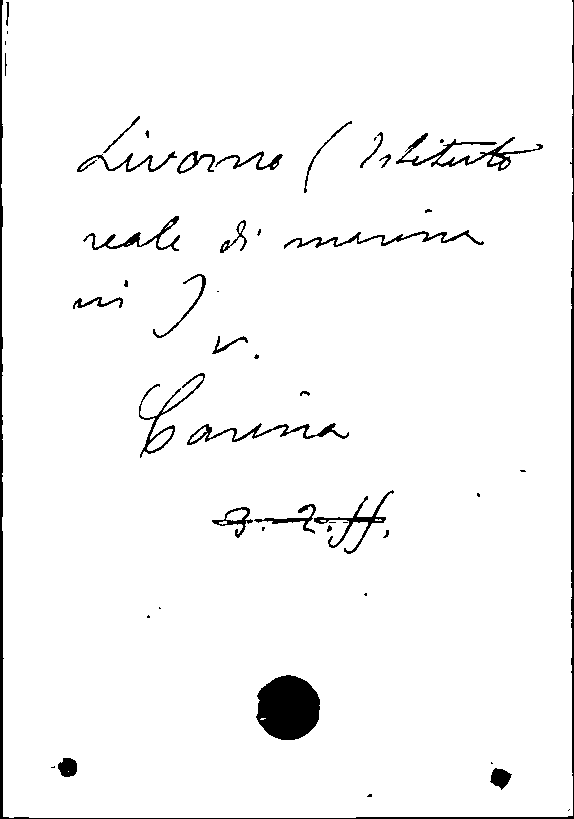 Livorno ( Istituto
reale di marina
in )
v.
Carina